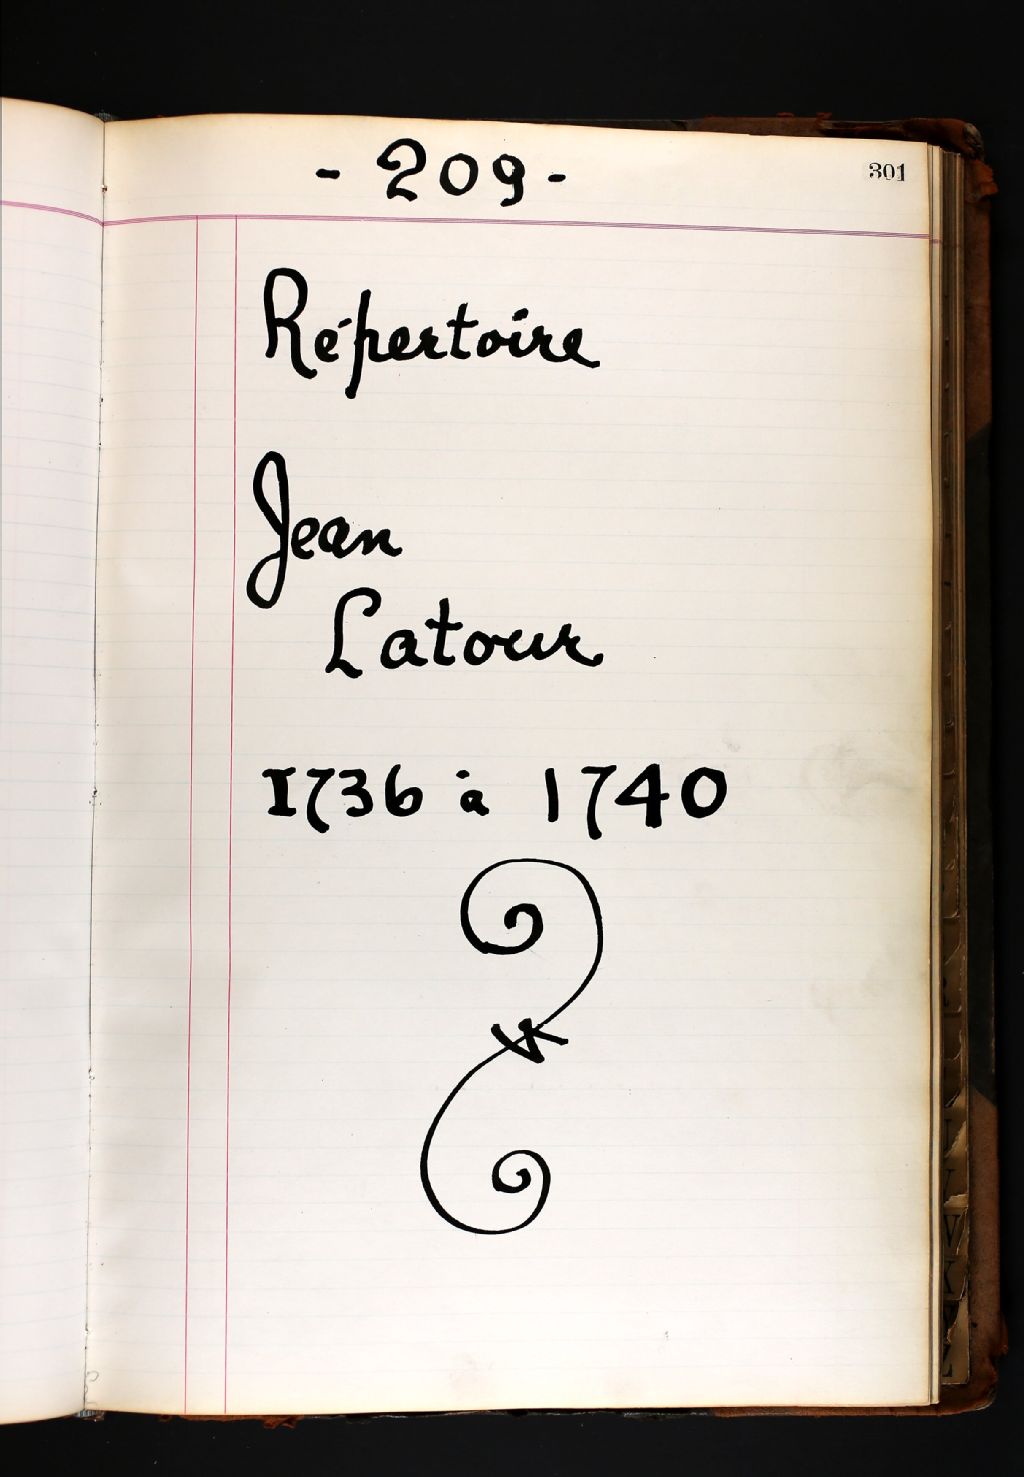 - 209 -
301
Répertoire
Jean
Latour
1736 à 1740